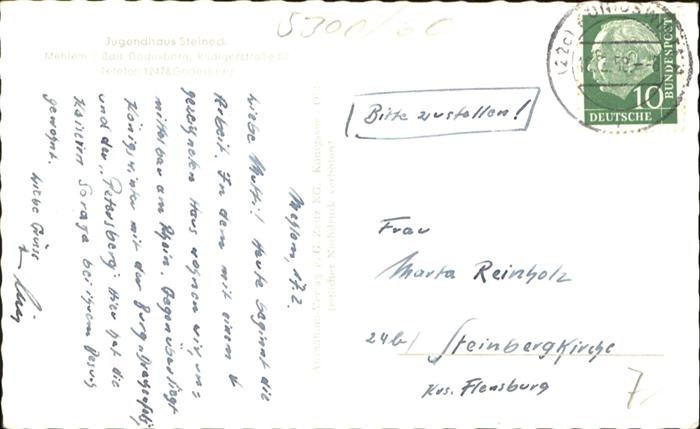 5300/60
Jugendhaus Steineck
Mehlem / Bad Godesberg, Rüdigerstraße
Telefon 12478 Godesberg
Mehlem, 17.2.
Liebe Mutti! Heute beginnt die
Arbeit. In dem mit einem ↓
gezeigneten Haus wohnen wir, uns
mittelbar am Rhein. Gegenüber liegt
Königswinter mit der Burg Drachenfels
und der „Petersberg". Hier hat die
Kaiserin Soraya bei ihrem Besuch
gewohnt.
Liebe Grüße
KG. Königswinter
jeglicher Nachdruck verboten!
(22c) KÖNIGSWINTER
10
DEUTSCHE
BUNDESPOST
Bitte zustellen!
Frau
Marta Reinholz
24b/ Steinbergkirche
Krs. Flensburg
7